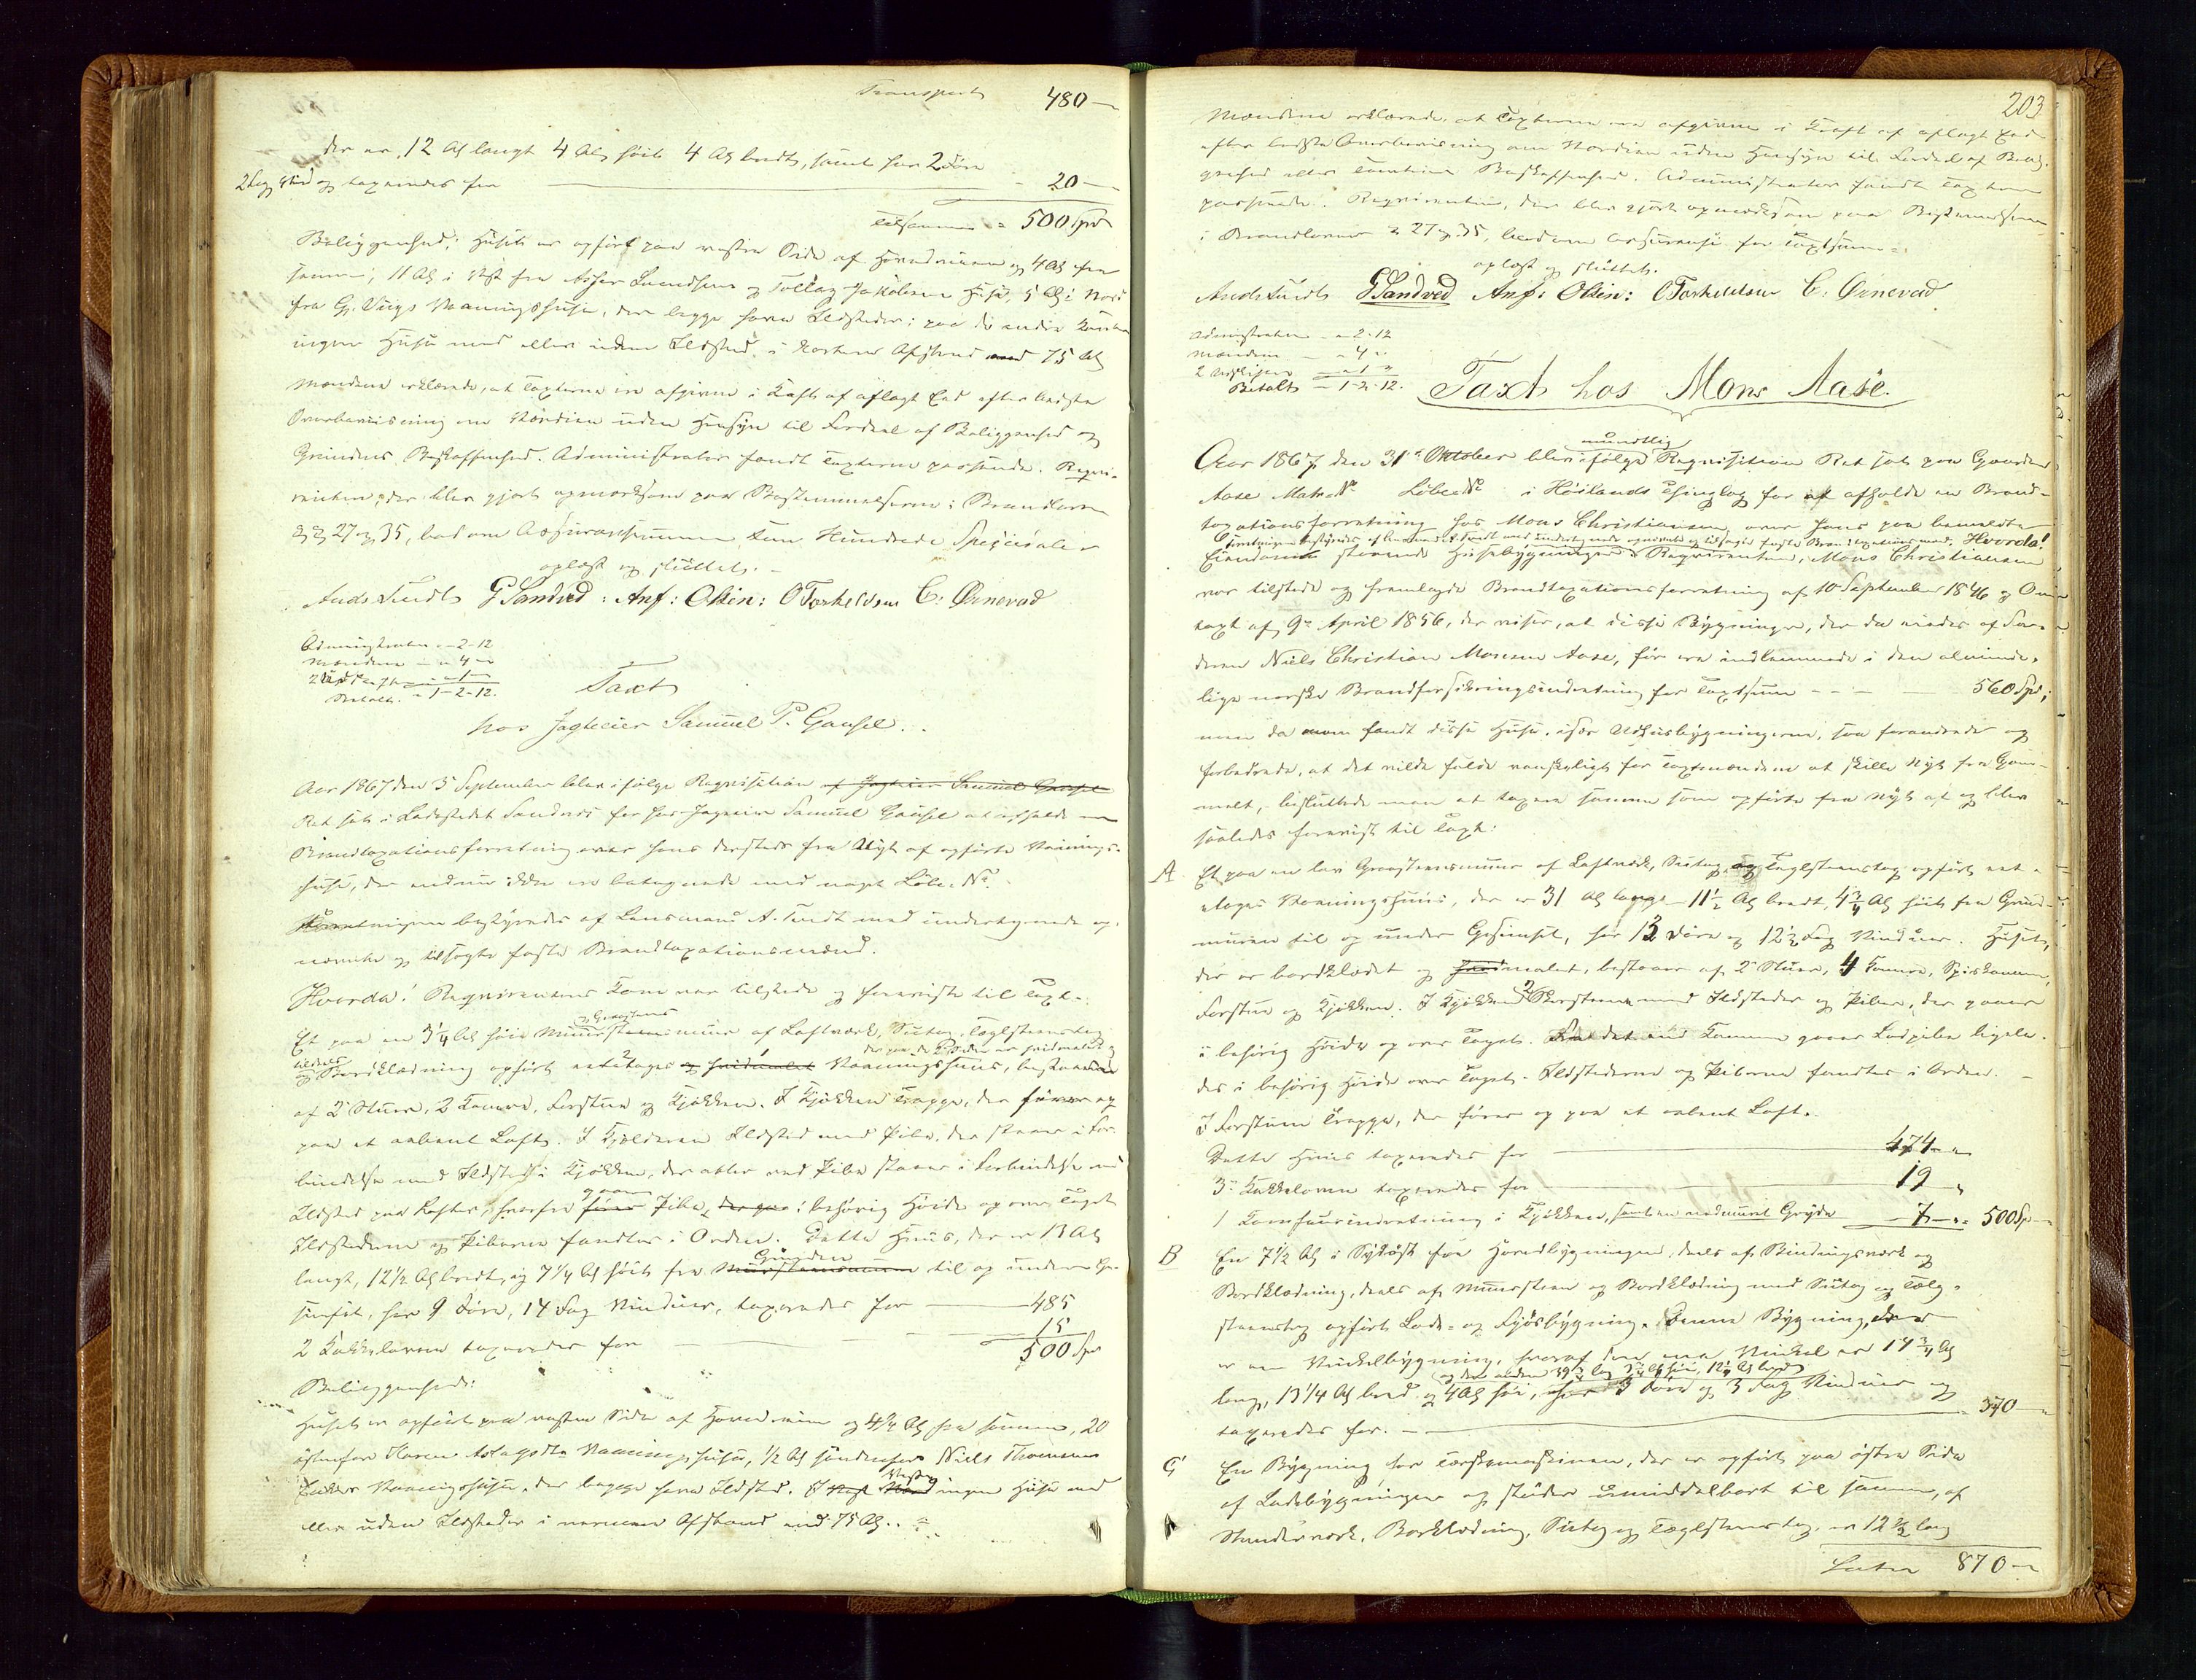 Transport 480 —
der er 12 Al langt 4 Al høit 4 Al bredt, samt har 2 Døre
2 Fag Vind og taxeredes for — 20 —
tilsammen = 500 Spd
Beliggenhed: Huset er opført paa vestre Side af Hovedveien og 4 Al fra
samme, 11 Al i Vest fra Asser Svendsens og Tollag Jakobsens Huse, 5 Al i Nord
fra G. Viigs Vaaningshuse, der begge have Ildsteder; paa de andre Kanter
ingen Huse med eller uden Ildsted i kortere Afstand end 75 Al
Mændene erklærede, at Taxterne ere afgivne i Kraft af aflagt Eed efter bedste
Overbeviisning om Værdien uden Hensyn til Fordeel af Beliggenhed og
Grundens Beskaffenhed. Administrator fandt Taxterne passende. Reqvi-
renten, der blev gjort opmærksom paa Bestemmelserne i Brandloven
§§ 27 og 35, bad om Assurancesummen fem Hundrede Speciedaler
oplæst og sluttet. —
Ands Tuedt G Sandved : Anf: Olsin : O Torkeldsen C. Ørnevad
Administrator — 2-12
Mændene — " 4 —
— 1 —
Betalt. — 1-2-12.
Taxt
hos Jagteier Samuel P. Gausel.
Aar 1867 den 3 September blev ifølge Reqvisition af Jagteier Samuel Gausel
Ret sat i Ladestedet Sandnes for hos Jagteier Samuel Gausel at afholde en
Brandtaxationsforretning over hans dersteds fra Nyt af opførte Vaanings-
huse, der endnu ikke er betegnede med noget Løbe-No.
Forretningen bestyredes af Lensmand A. Tuedt med undertegnede op-
nævnte og tilsagte faste Brandtaxationsmænd.
Hvorda! Reqvirentens Kone var tilstede og foreviste til Taxt:
og Graasteens
Et paa en 3¼ Al høie Muursteensmuur af Laftværk, Sutag, Teglsteenstag
tildeels der paa de 2 Sider er hvidmalet og
og Bordklædning opført 1 etages og hvidmalet Vaaningshuus, bestaaende
af 2 Stuer, 2 Kamre, Forstue og Kjøkken. I Kjøkken Trappe, der fører op
paa et aabent Loft. I Kjælderen Ildsted med Pibe, der staaer i For-
bindelse med Ildsted i Kjøkken, der atter ved Pibe staaer i Forbindelse med
gaaer
Ildsted paa Loftet, hvorfra fører Pibe, der gaar i behørig Høide op over Taget
Ildstederne og Piberne fandtes i Orden. Dette Huus, der er 13 Al
Grunden
langt, 12½ Al bredt, og 7¼ Al høit fra Muursteensmuren til op under Ge-
simset, har 9 Døre, 14 Fag Vinduer, taxeredes for — 485
2 Kakkelovne taxeredes for — 15
500 Spd
Beliggenhed:
Huset er opført paa vestre Side af Hovedveien og 4¼ Al fra samme, 20
østenfor Vaaningshuse, ½ Al søndenfor Niels Thomsens
Vaaningshuse, der begge have Ildsted. I Vest Nord ingen Huse med
Vester
eller uden Ildsteder i nærmere Afstand end 75 Al.
203
Mændene erklærede, at Taxterne ere afgivne i Kraft af aflagt Eed
efter bedste Overbeviisning om Værdien uden Hensyn til Fordeel af Belig-
genhed eller Tomtens Beskaffenhed. Administrator fandt Taxterne
passende. Reqvirenten, der blev gjort opmærksom paa Bestemmelserne
i Brandloven § 27 og 35, bad om Assurance for Taxtsummen.
oplæst og sluttet.
Ands Tuedt G Sandved Anf: Olsin: O Torkeldsen C. Ørnevad
Administrator — 2-12
Mændene — " 4 "
— 1 "
Betalt — 1-2-12.
Taxt hos Mons Aase.
mundtlig
Aar 1867 den 31te Oktober blev ifølge Reqvisition Ret sat paa Gaarden
Aase Matr No Løbe No i Høilands Thinglag for at afholde en Brand-
taxationsforretning hos Mons Christiansen over hans paa bemeldte
Forretningen bestyredes af Lensmand A. Tuedt med undertegnede opnævnte og tilsagte faste Brandtaxationsmænd. Hvorda!
Eiendom staaende Huusbygninger. Reqvirenten, Mons Christiansen
var tilstede og fremlagde Brandtaxationsforretning af 10 September 1846 og Om-
taxt af 9de April 1856, der viser, at disse Bygninger, der da eiedes af Fa-
deren Niels Christian Monsen Aase, før ere indlemmede i den alminde-
lige norske Brandforsikringsindretning for Taxtsum — 560 Spd;
men da man fandt disse Huse, især Udhuusbygningerne, saa forandrede og
forbedrede, at det vilde falde vanskeligt for Taxtmændene at skille Nyt fra Gam-
melt, besluttede man at taxere samme som opførte fra Nyt af og blev
saaledes forevist til Taxt:
A Et paa en lav Graasteensmuur af Laftværk, Sutag og Teglsteenstag opført een-
etages Vaaningshuus, der er 31 Al langt — 11½ Al bredt, 4¾ Al høit fra Grund-
muren til op under Gesimset, har 13 Døre og 12½ Fag Vinduer. Huset,
der er bordklædet og hvidmalet, bestaaer af 2 Stuer, 4 Kamre, Spiskammer,
Forstue og Kjøkken. I Kjøkken 2 Skorsteene med Ildsteder og Piber, der gaaer
i behørig Høide op over Taget. Kammer gaaer Lodpibe ligele-
des i behørig Høide over Taget. Ildstederne og Piberne fandtes i Orden. —
I Forstuen Trappe, der fører op paa et aabent Loft.
Dette Huus taxeredes for — 474 — "
3 Kakkelovne taxeredes for — 19 "
1 Komfurindretning i Kjøkken, samt en indmuret Gryde — 7 — = 500 Sp —
B En 7½ Al i Sydøst fra Hovedbygningen, deels af Bindingsværk og
Bordklædning, deels af Muursteen og Bordklædning med Sutag og Tegl-
steenstag opført Lade- og Fjøsbygning. Denne Bygning, der er
er en Vinkelbygning, hvoraf den ene Vinkel er 17¾ Al
og den anden 39¾ lang 3¾ Al høi, 12¼ Al bred
lang, 13¼ Al bred og 4 Al høi, har 3 Døre og 3 Fag Vinduer og
taxeredes for. — 370 — "
C En Bygning for Tærskemaskinen, der er opført paa østre Side
af Ladebygningen og støder umiddelbart til samme, af
Stenderværk, Bordklædning, Sutag og Teglsteenstag, er 12½ lang
Latus 870 —